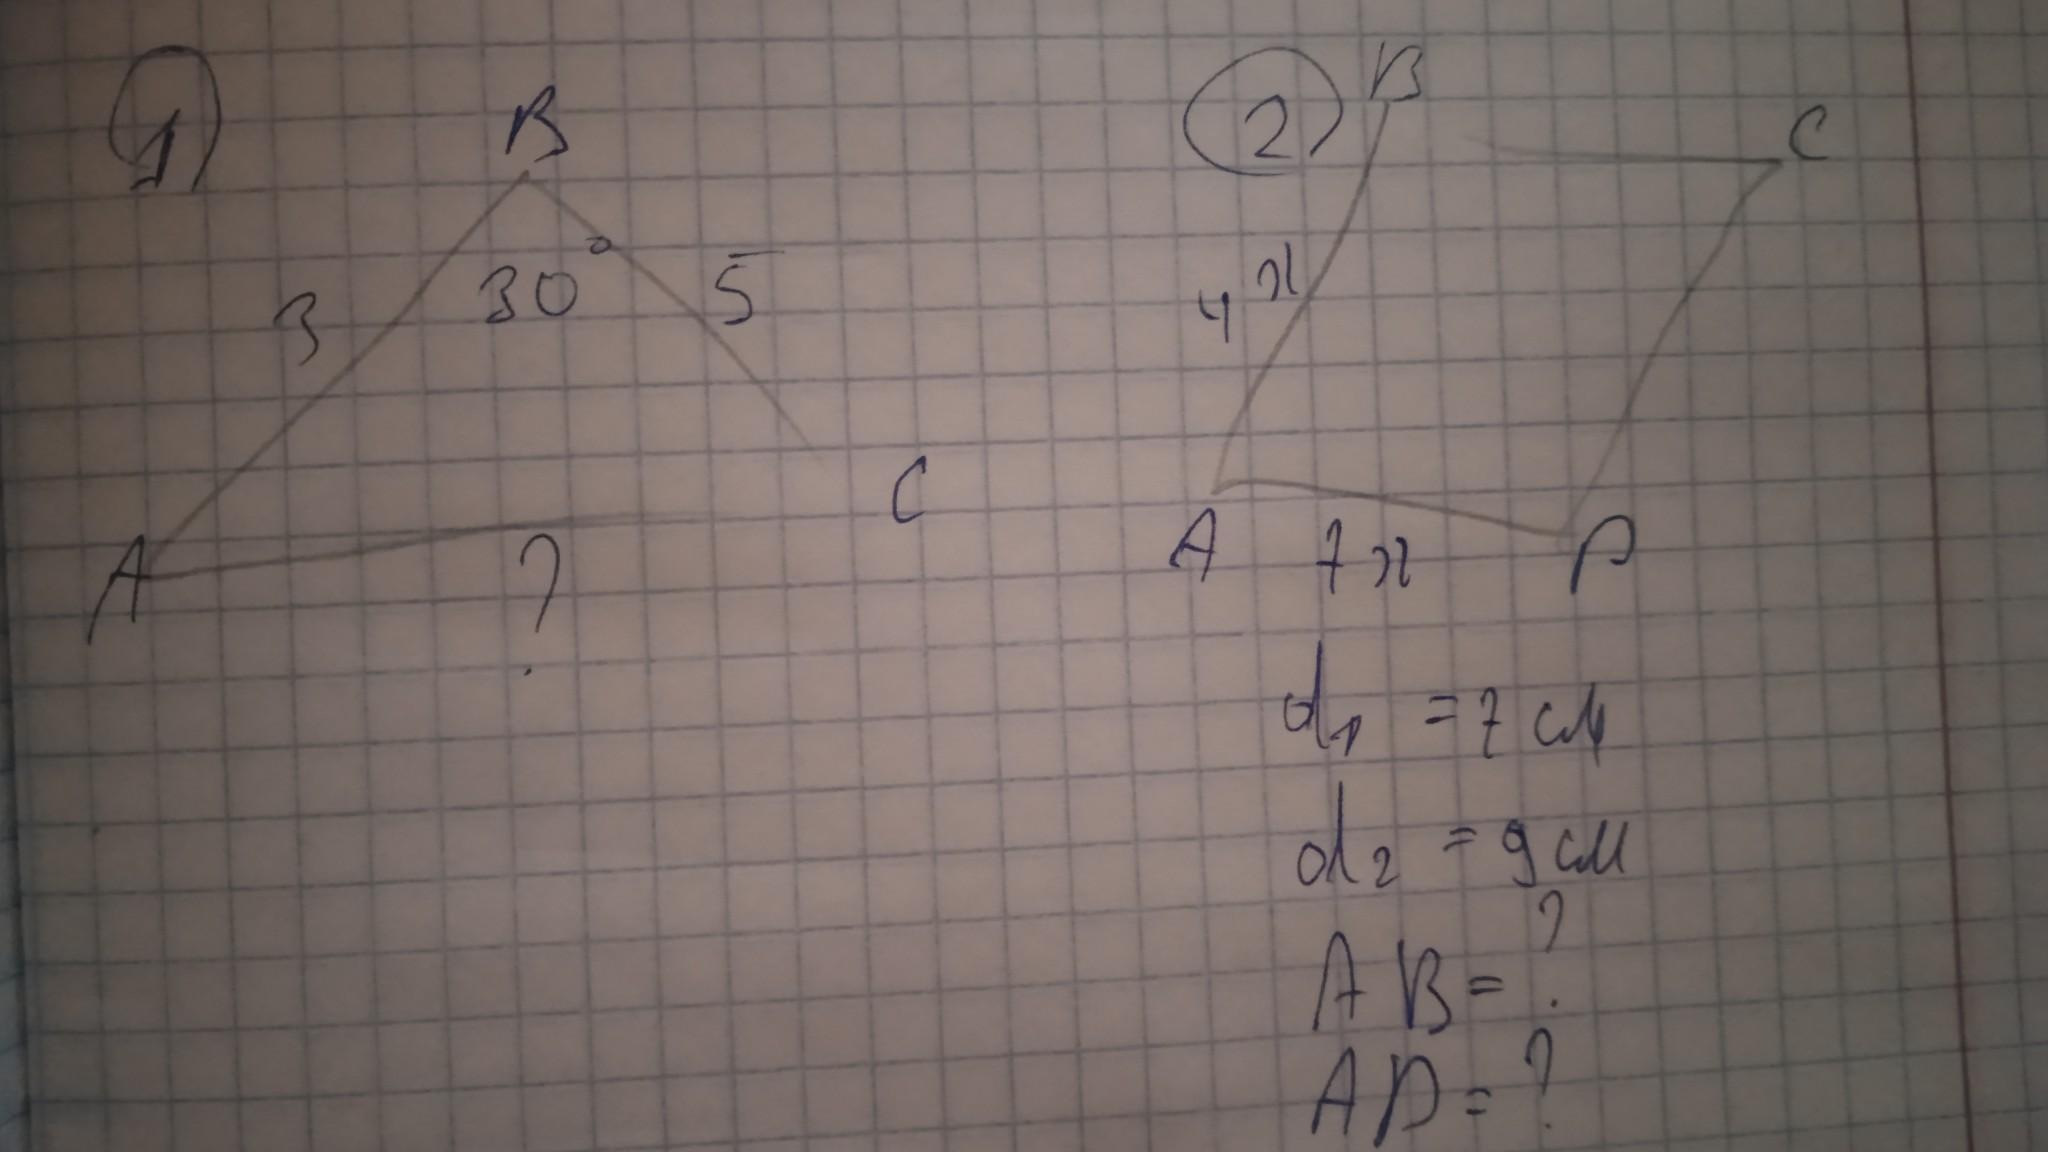 1
B
3
30°
5
A
?
C
2
B
C
4x
A
7x
D
d₁ = 7 см
d₂ = 9 см
AB = ?
AD = ?